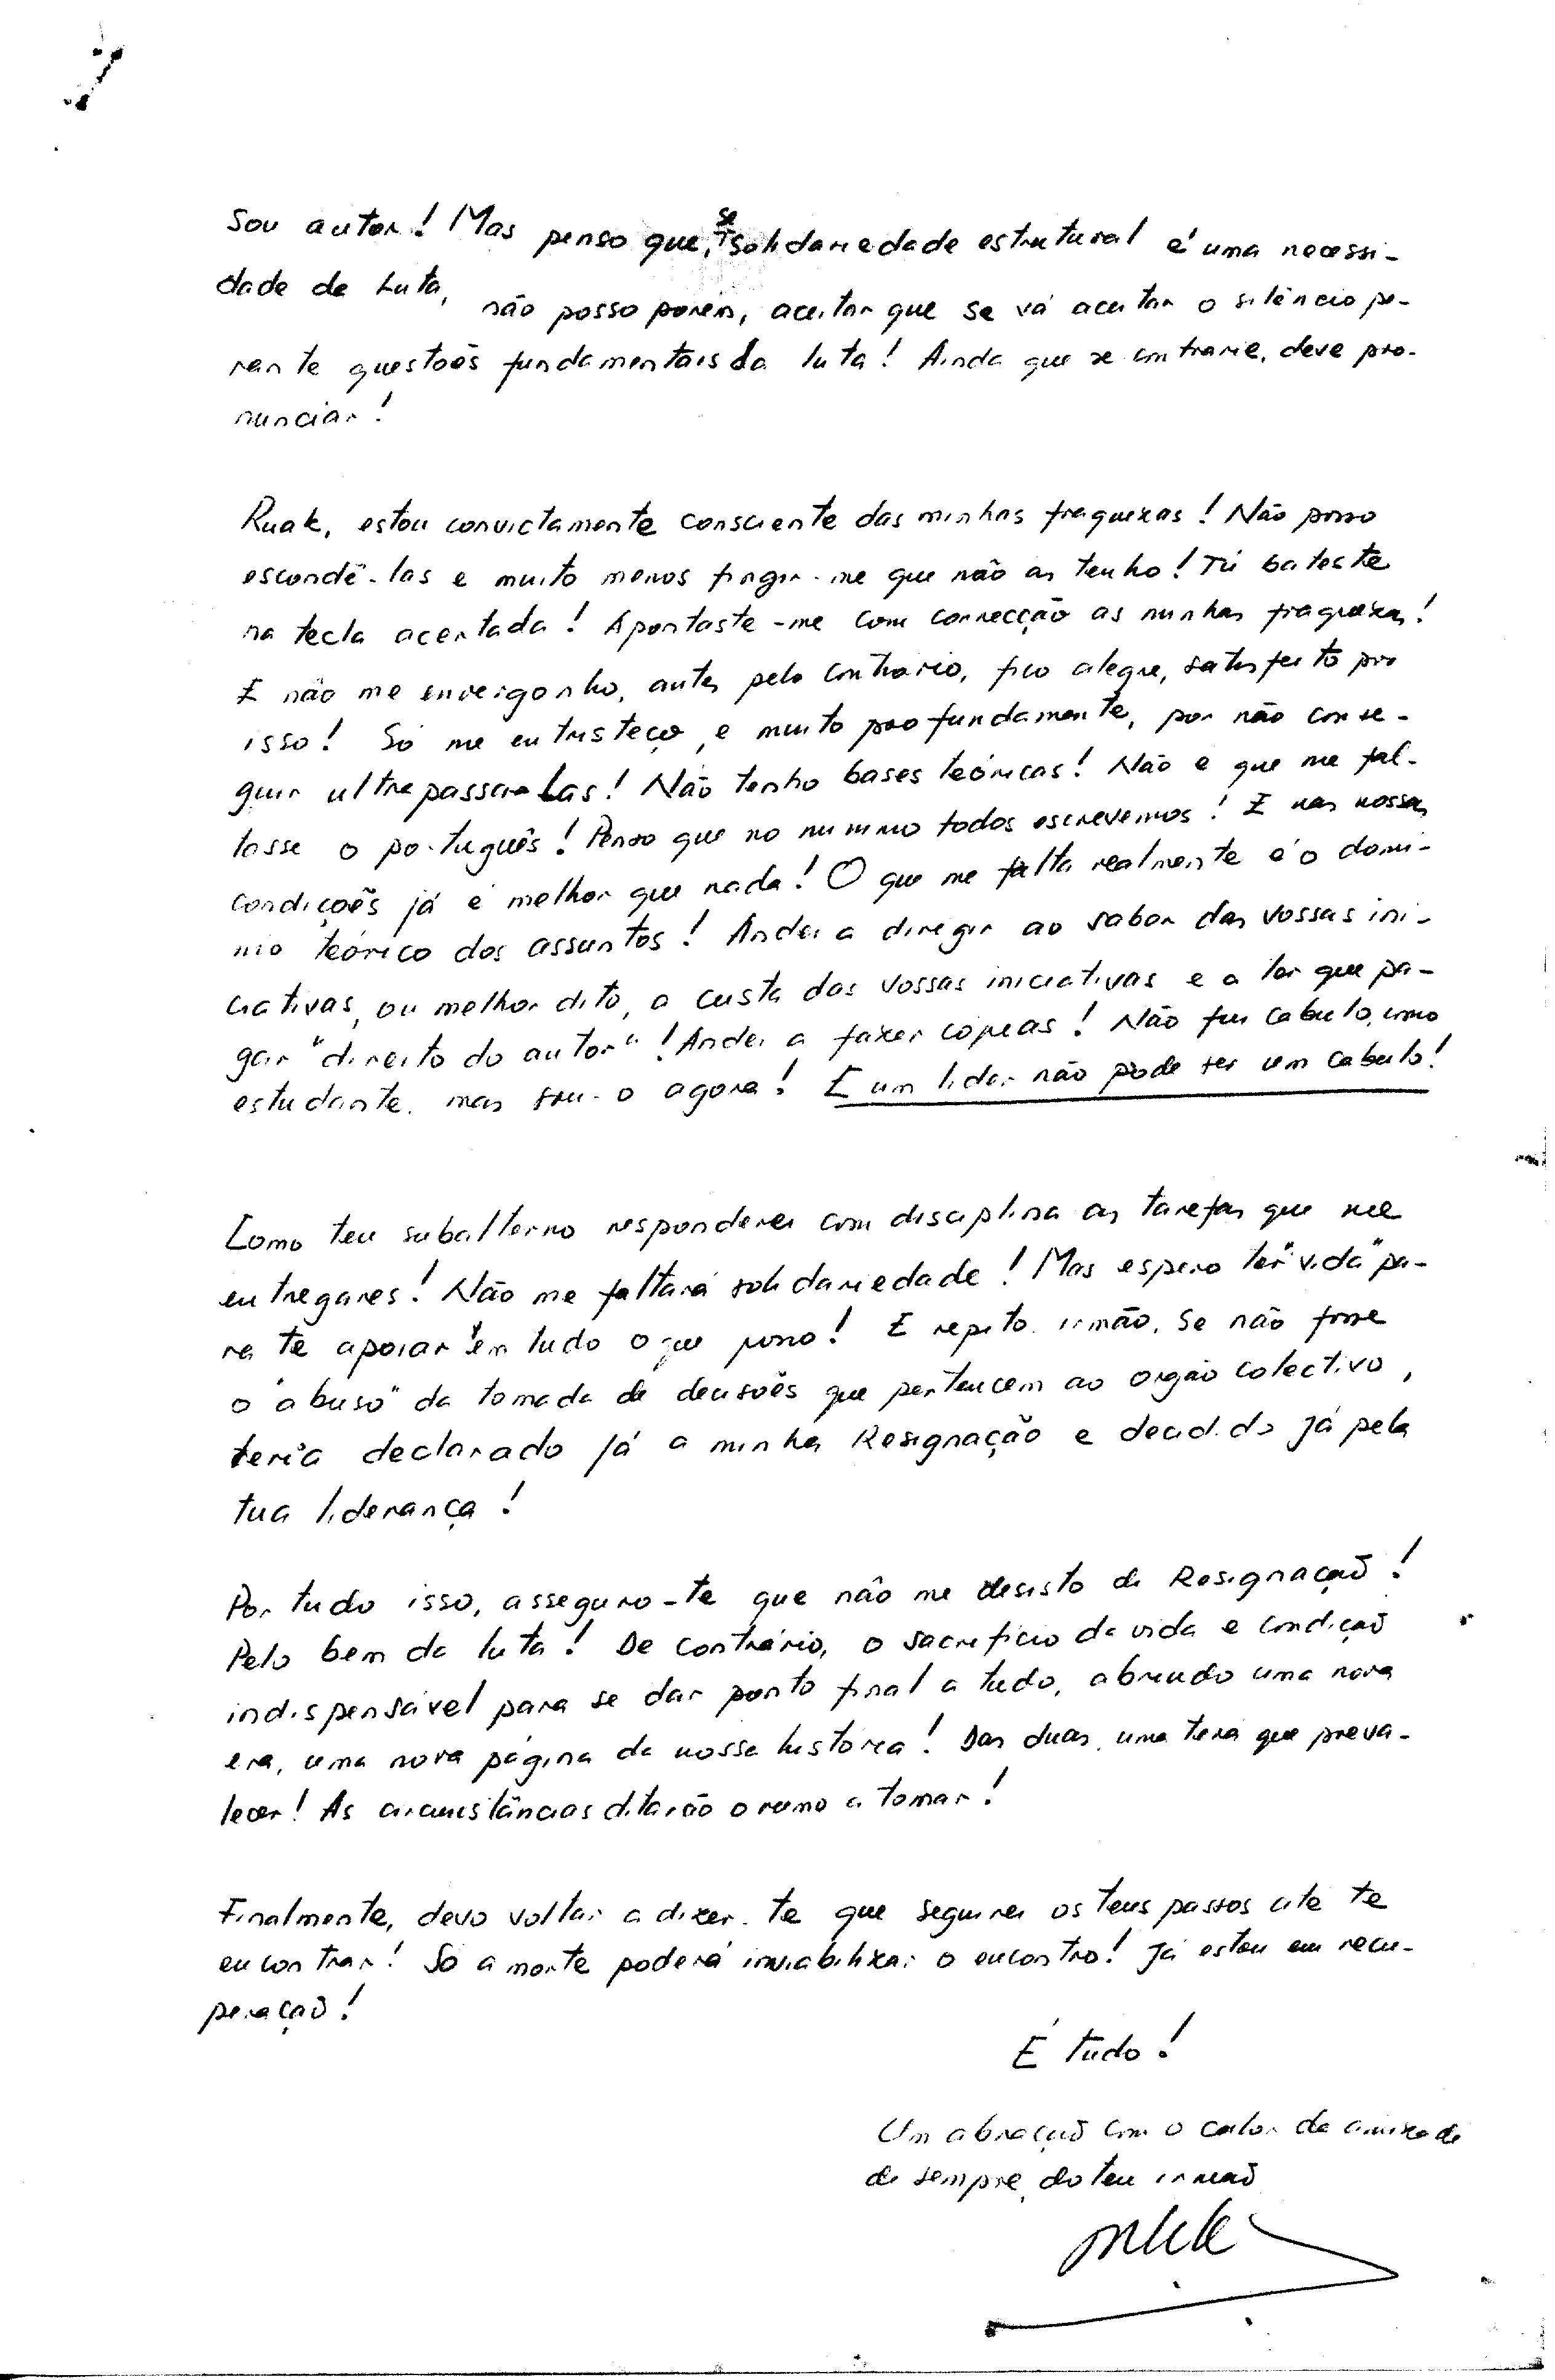 Sou autor! Mas penso que, se solidariedade estrutural é uma necessi-
dade de Luta, não posso porém, aceitar que se vá aceitar o silêncio pe-
rante questoẽs fundamentais da luta! Ainda que se contrarie, deve pro-
nunciar!
Ruak, estou convictamente consciente das minhas fraquezas! Não posso
escondê-las e muito menos fingir-me que não as tenho! Tú bateste
na tecla acertada! Apontaste-me com correcção as minhas fraquezas!
E não me envergonho, antes pelo contrario, fico alegre, satisfeito por
isso! Só me entristeço, e muito profundamente, por não conse-
guir ultrapassar-las! Não tenho bases teóricas! Não e que me fal-
tasse o português! Penso que no minimo todos escrevemos! E nas nossas
condiçoẽs já é melhor que nada! O que me falta realmente é o domi-
nio teórico dos assuntos! Andei a dirigir ao sabor das vossas ini-
ciativas, ou melhor dito, a custa das vossas iniciativas e a ter que pa-
gar "direito do autor"! Andei a fazer copias! Não fui cabulo, como
estudante, mas sou-o agora! E um lider não pode ser um cabulo!
Como teu subalterno responderei com disciplina as tarefas que me
entregares! Não me faltará solidariedade! Mas espero ter "vida" pa-
ra te apoiar em tudo o que posso! E repito, irmão, se não fosse
o "abuso" da tomada de decisoẽs que pertencem ao orgão colectivo,
teria declarado já a minha Resignação e decidido já pela
tua liderança!
Por tudo isso, asseguro-te que não me desisto de Resignaçaõ!
Pelo bem da luta! De contrário, o sacrificio da vida e condiçaõ
indispensável para se dar ponto final a tudo, abrindo uma nova
era, uma nova página da nossa historia! Das duas, uma terá que preva-
lecer! As circunstâncias ditarão o rumo a tomar!
Finalmente, devo voltar a dizer-te que seguirei os teus passos ate te
encontrar! Só a morte poderá inviabilizar o encontro! Já estou em recu-
peraçaõ!
É tudo!
Um abraçaõ com o calor da amizade
de sempre, do teu irmaõ